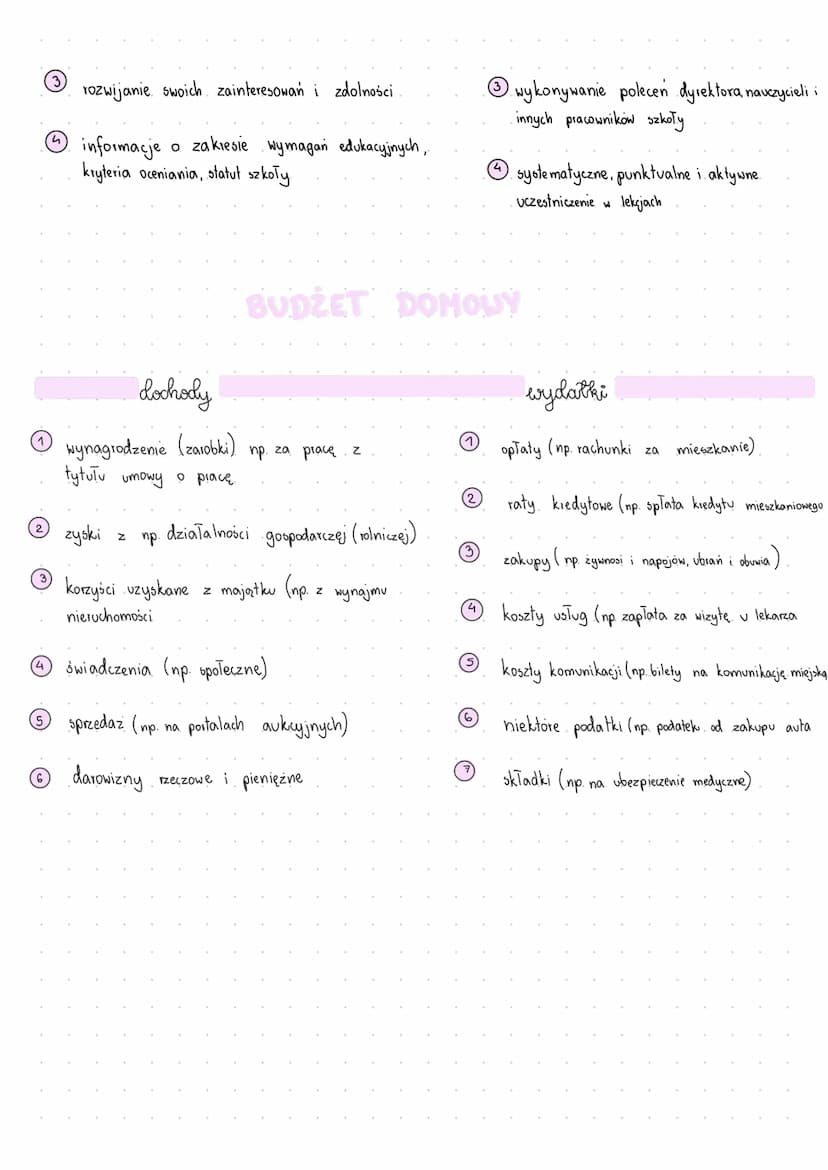 3 rozwijanie swoich zainteresowań i zdolności
4 informacje o zakresie wymagań edukacyjnych,
kryteria oceniania, statut szkoły
3 wykonywanie poleceń dyrektora, nauczycieli i
innych pracowników szkoły
4 systematyczne, punktualne i aktywne
uczestniczenie w lekcjach
BUDŻET DOMOWY
dochody
1 wynagrodzenie (zarobki) np. za pracę z
tytułu umowy o pracę
2 zyski z np. działalności gospodarczej (rolniczej)
3 korzyści uzyskane z majątku (np. z wynajmu
nieruchomości
4 świadczenia (np. społeczne)
5 sprzedaż (np. na portalach aukcyjnych)
6 darowizny rzeczowe i pieniężne
wydatki
1 opłaty (np. rachunki za mieszkanie)
2 raty kredytowe (np. spłata kredytu mieszkaniowego
3 zakupy (np. żywnosi i napojów, ubrań i obuwia)
4 koszty usług (np. zapłata za wizytę u lekarza
5 koszty komunikacji (np. bilety na komunikację miejską
6 niektóre podatki (np. podatek od zakupu auta
7 składki (np. na ubezpieczenie medyczne)